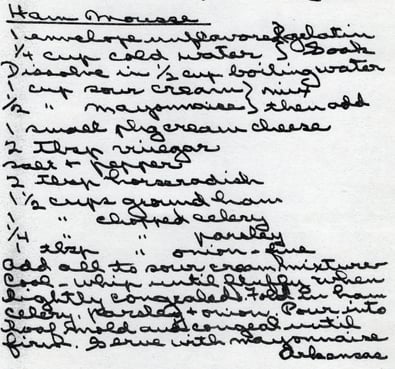 Ham Mousse
1 envelope unflavored } gelatin
1/4 cup cold water } Soak
Dissolve in 1/2 cup boiling water
1 cup sour cream } mix
1/2 " mayonnaise } then add
1 small phg cream cheese
2 Tbsp vinegar
salt + pepper
2 tbsp horseradish
1 1/2 cups ground ham
1 " chopped celery
1/4 " " parsley
1 tbsp " onion - fine
Add all to sour cream mixture
Cool - whip until fluffy when
lightly congealed. Fold in ham
celery, parsley + onion. Pour into
loaf mold and congeal until
firm. Serve with mayonnaise
Arkansas